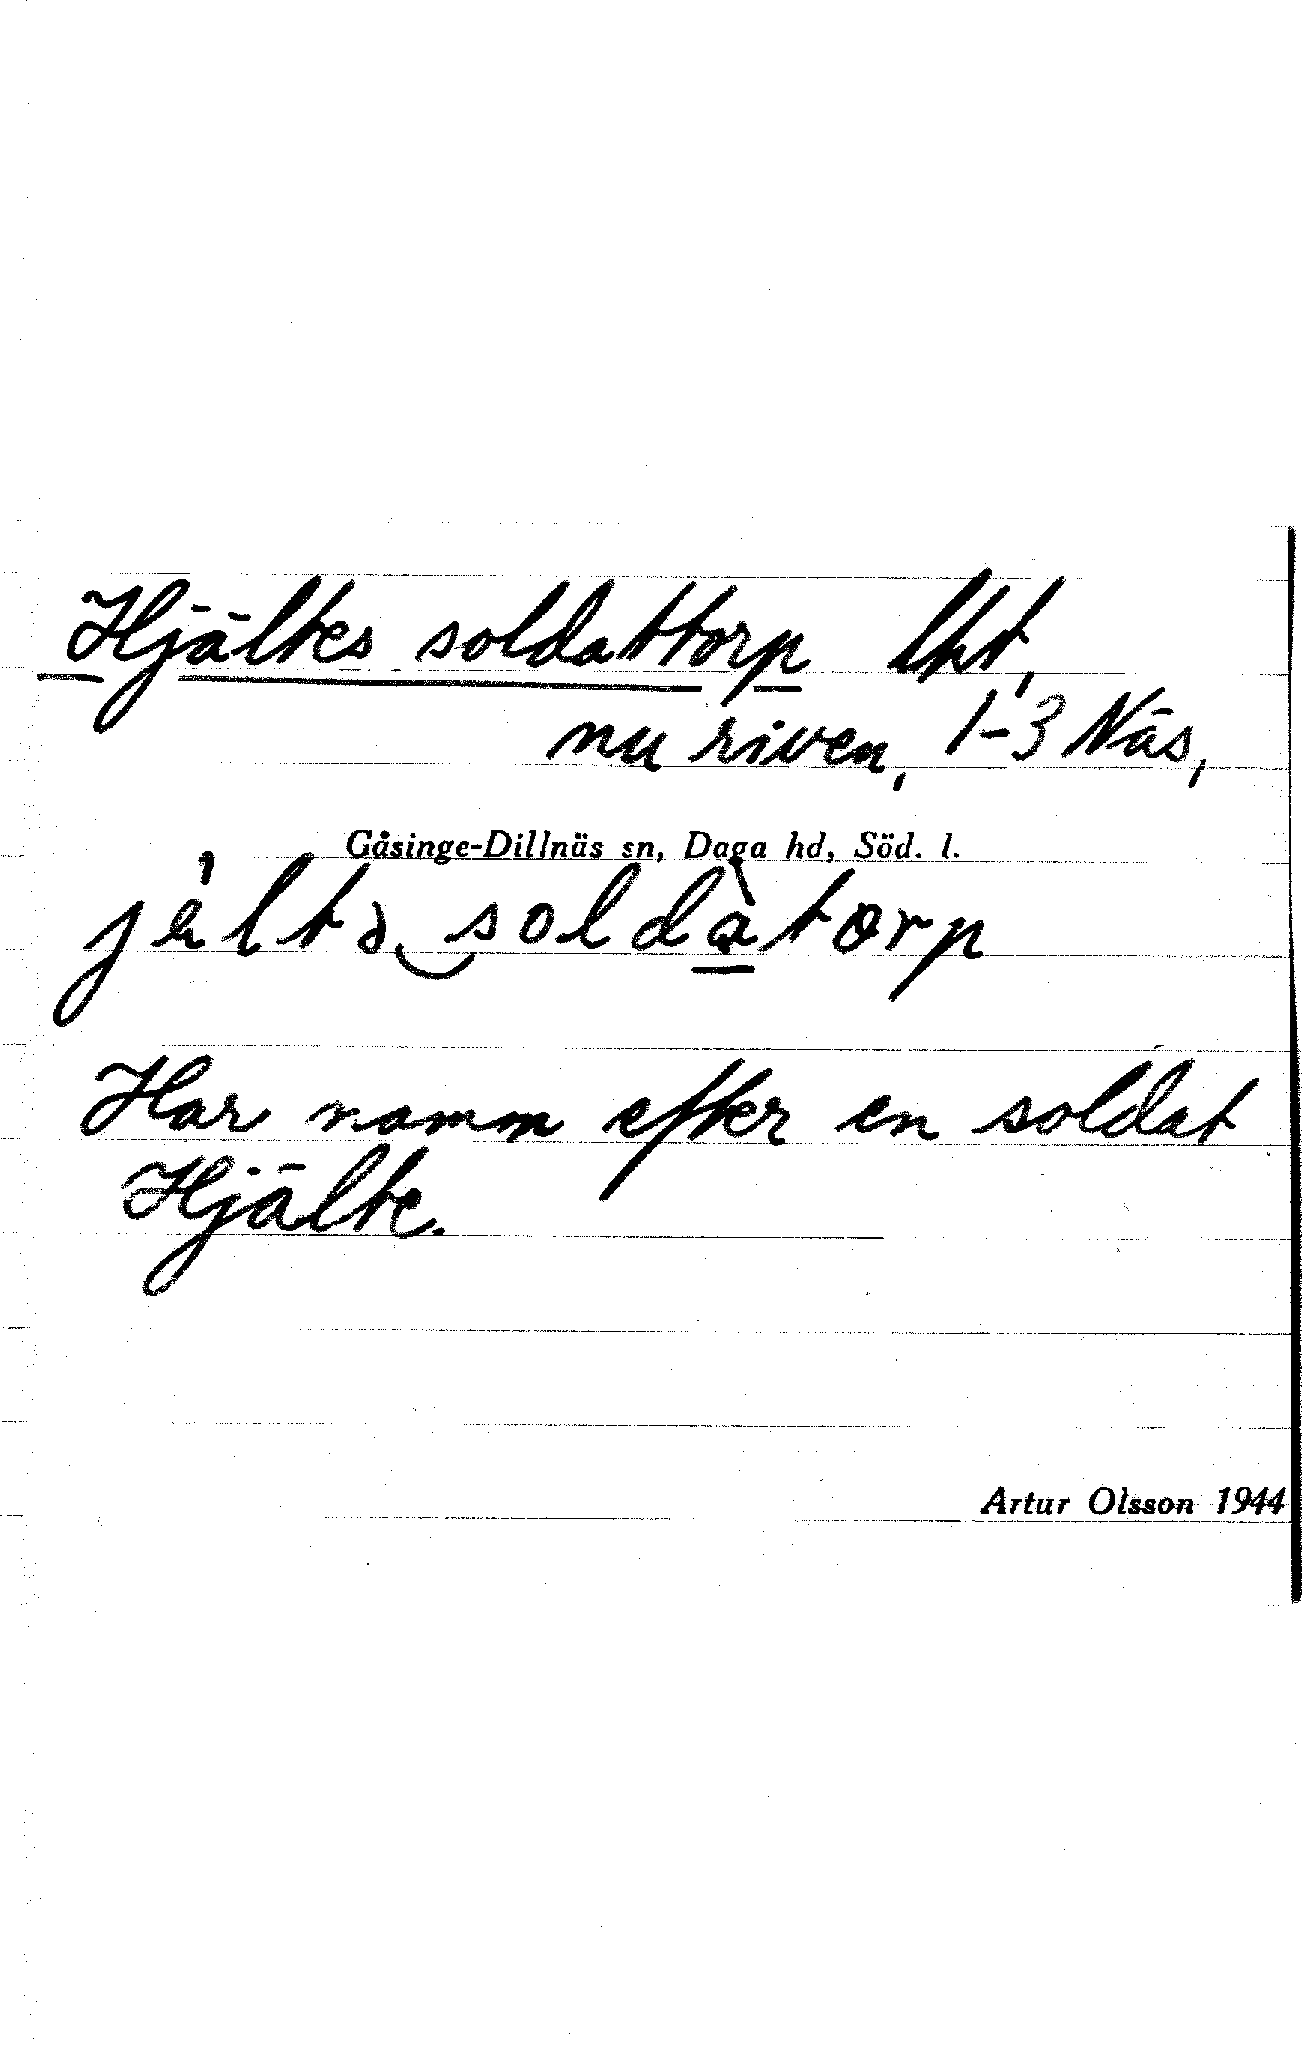 Hjältes soldattorp lht,
nu riven, 1-3 Näs,
Gåsinge-Dillnäs sn, Daga hd, Söd. l.
jèltə soldàtorp
Har namn efter en soldat
Hjälte.
Artur Olsson 1944